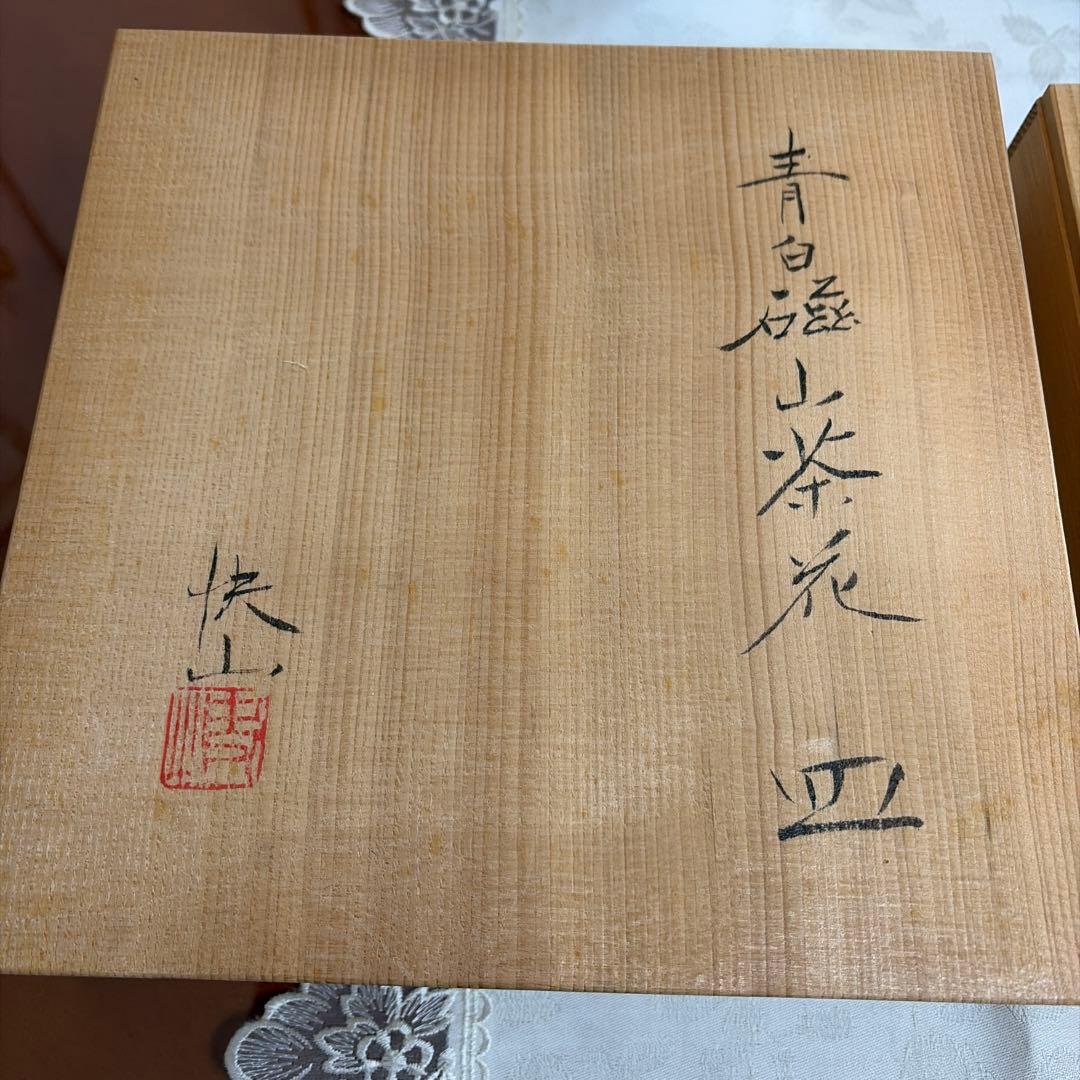 青白磁山茶花皿
快山